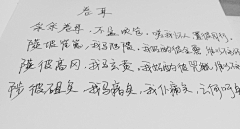 卷耳
采采卷耳,不盈顷筐,嗟我怀人,寘彼周行。
陟彼崔嵬,我马虺隤,我姑酌彼金罍,维以不永
陟彼高冈,我马玄黄,我姑酌彼兕觥,维以不永
陟彼砠矣,我马瘏矣,我仆痡矣,云何吁矣